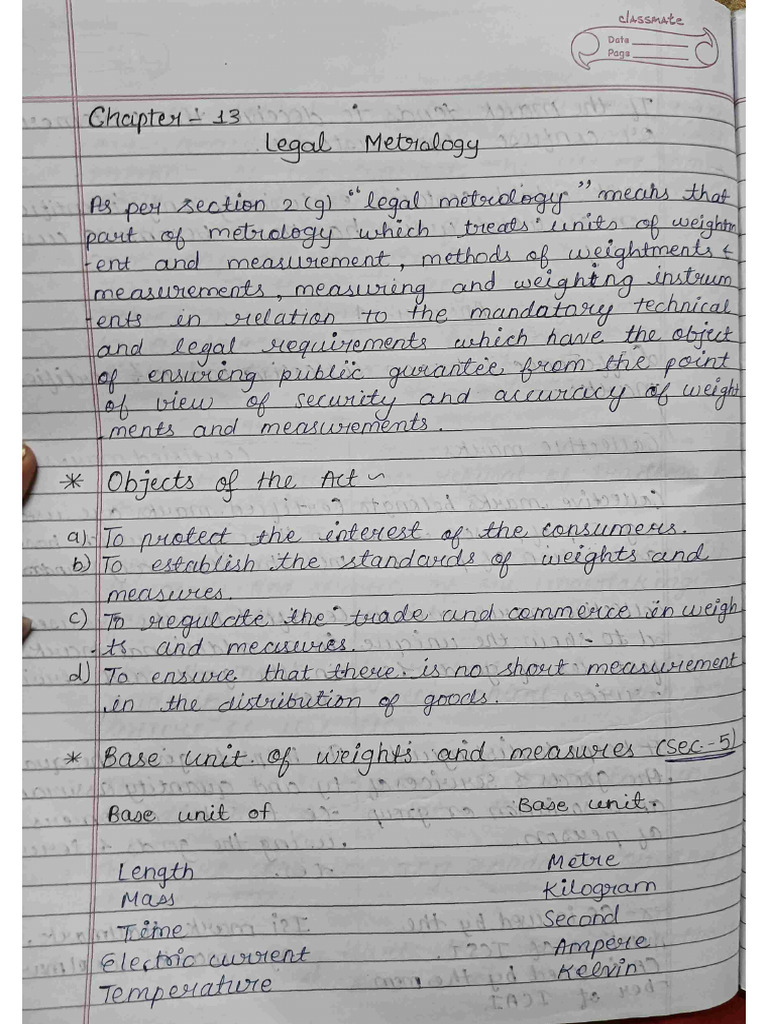 classmate
Date
Page
Chapter - 13
Legal Metrology
As per section 2(g) "legal metrology" means that
part of metrology which treats units of weightm
-ent and measurement, methods of weightments &
measurements, measuring and weighting instrum
-ents in relation to the mandatory technical
and legal requirements which have the object
of ensuring public gurantee from the point
of view of security and accuracy of weight
-ments and measurements.
* Objects of the Act ~
a) To protect the interest of the consumers.
b) To establish the standards of weights and
measures.
c) To regulate the trade and commerce in weigh
-ts and measures.
d) To ensure that there is no short measurement
in the distribution of goods.
* Base unit of weights and measures (Sec-5)
Base unit of Base unit
Length Metre
Mass Kilogram
Time Second
Electric current Ampere
Temperature Kelvin